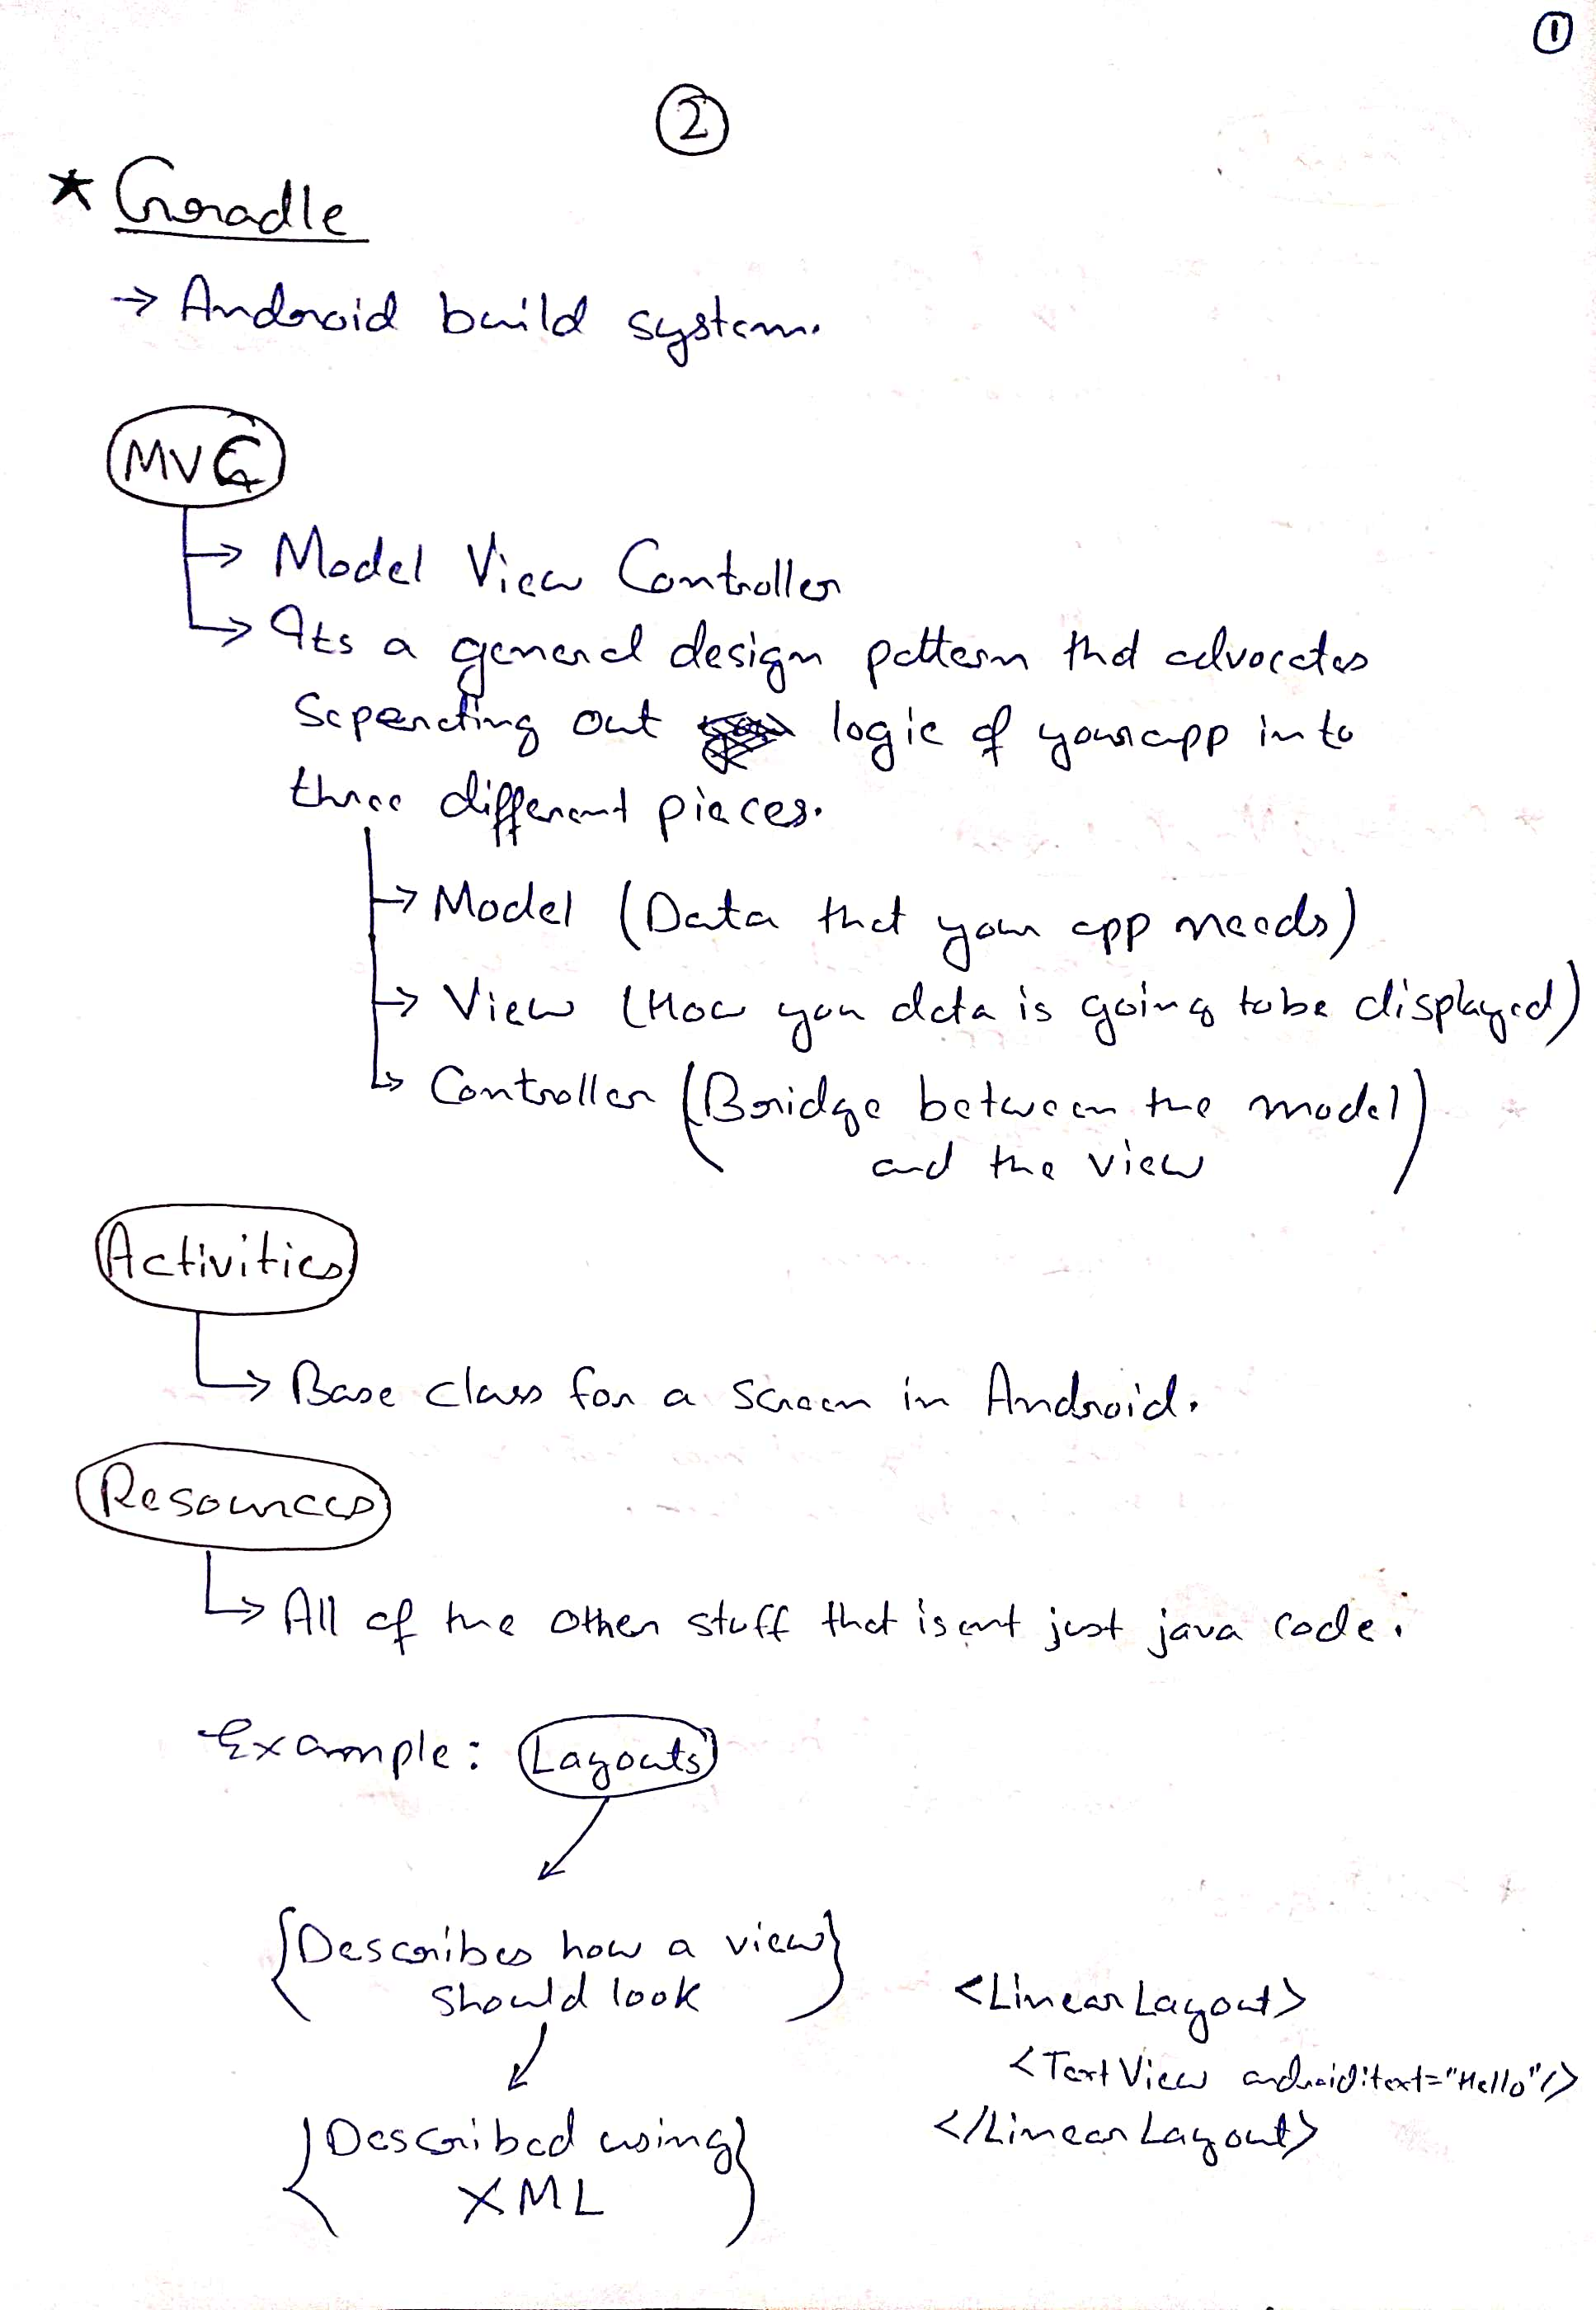 ①
②
* Gradle
→ Android build system.
MVC
→ Model View Controller
→ Its a general design pattern that advocates
Seperating out logic of your app into
three different pieces.
→ Model (Data that your app needs)
→ View (How you data is going to be displayed)
→ Controller (Bridge between the model
and the view)
Activities
→ Base class for a screen in Android.
Resources
→ All of the other stuff that isent just java code.
Example: Layouts
{Describes how a view
should look}
<LinearLayout>
<TextView android:text="Hello"/>
</LinearLayout>
{Described using
XML}